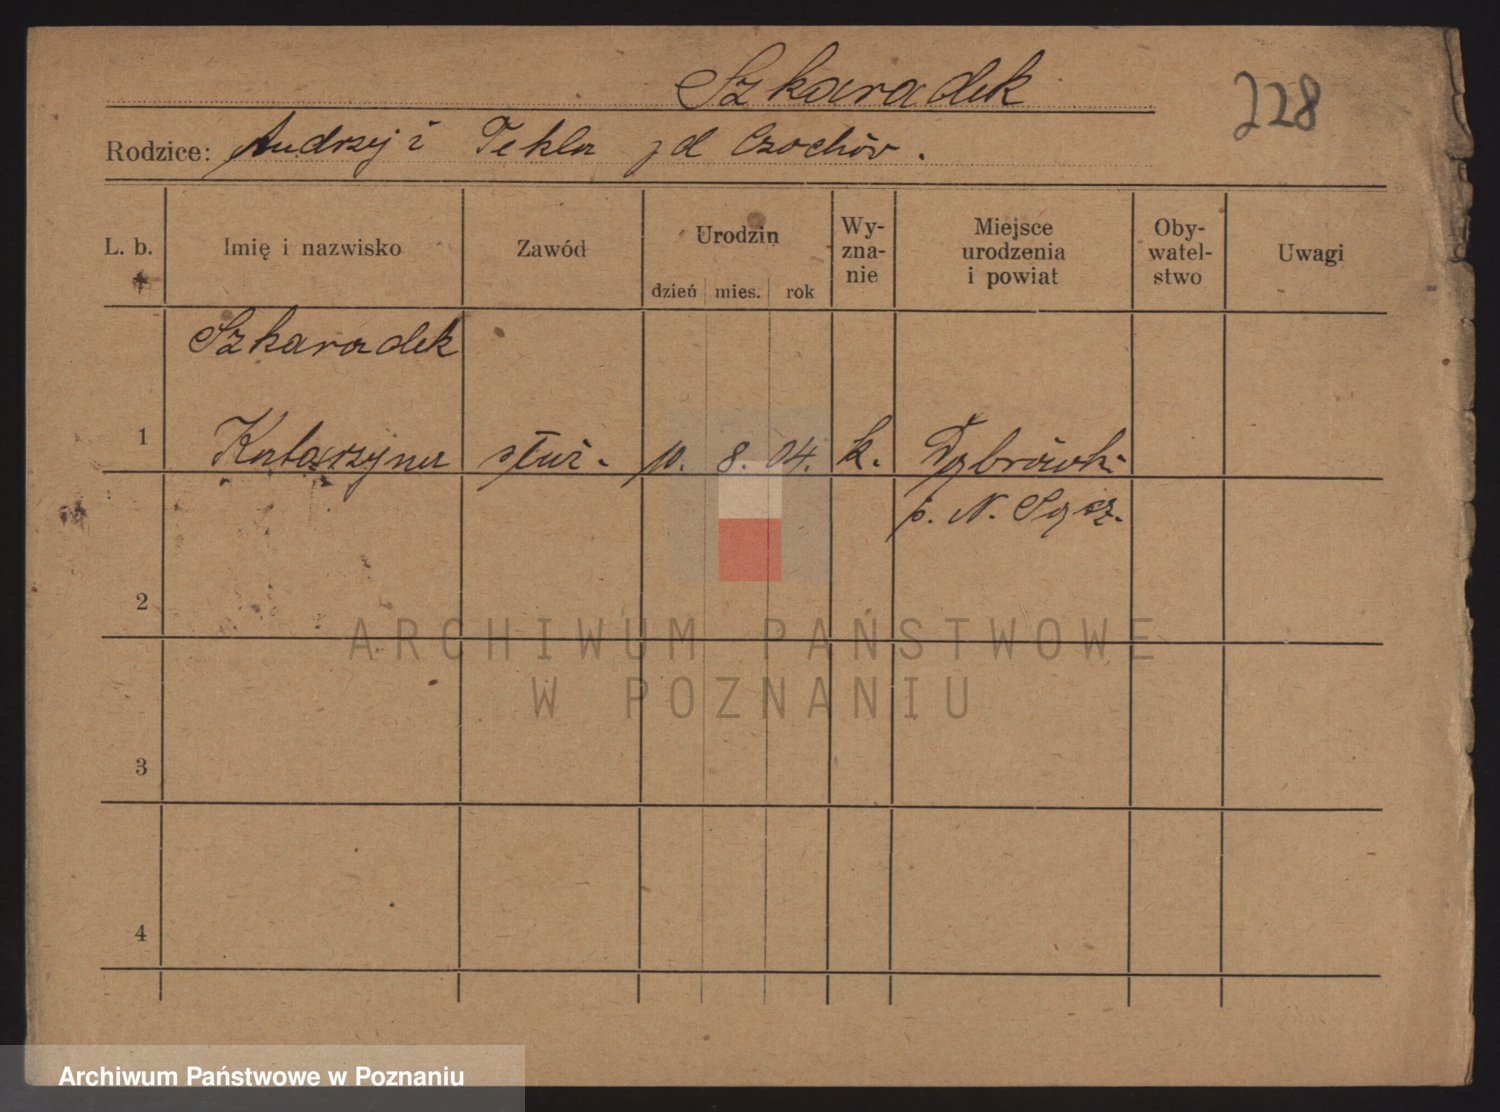 Szkaradek
228
Rodzice: Andrzej i Tekla zd Czochów.
L. b. Imię i nazwisko Zawód Urodzin Wy-zna-nie Miejsce urodzenia i powiat Oby-watel-stwo Uwagi
dzień mies. rok
Szkaradek
1 Katarzyna służ. 10. 8. 04. k. Dąbrówk.
p. N. Sącz.
2
ARCHIWUM PAŃSTWOWE
W POZNANIU
3
4
Archiwum Państwowe w Poznaniu